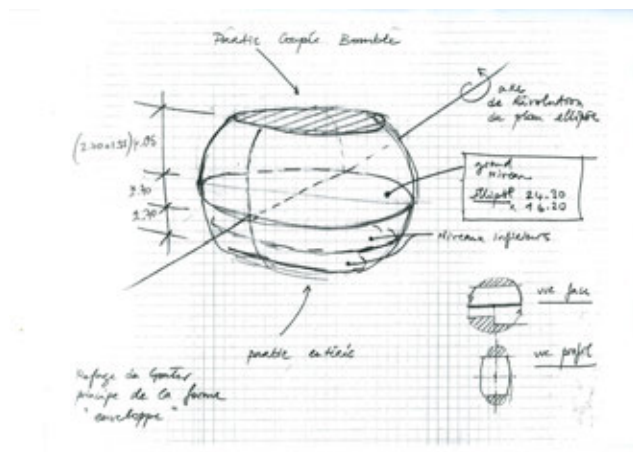 Partie Coupée Bombée
axe
de Révolution
du plan ellipse
grand
niveau
ellipse 24.20
x 16.20
niveaux inférieurs
2.70
vue face
vue profil
partie
Refuge du Goûter
principe de la forme
"enveloppe"